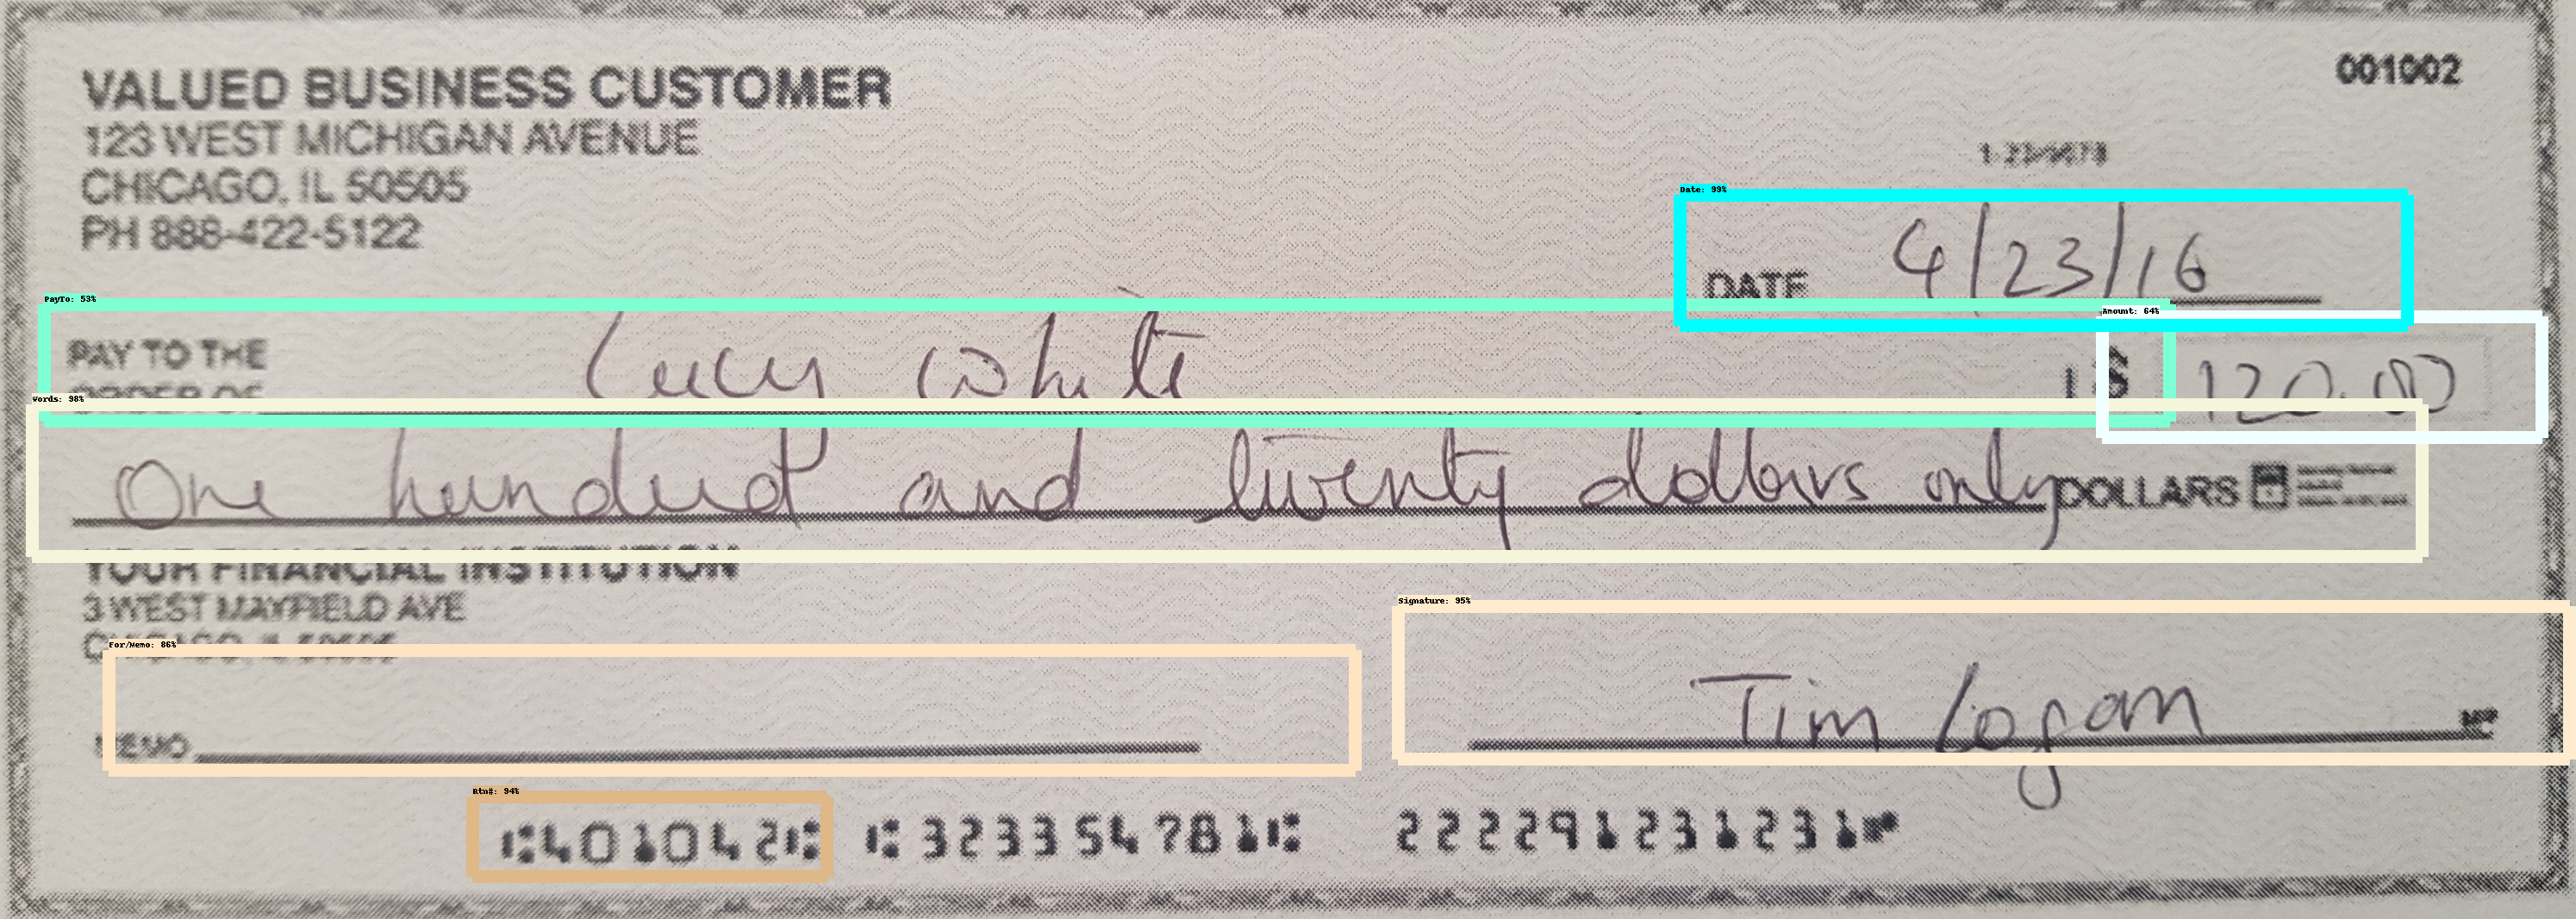 VALUED BUSINESS CUSTOMER
001002
123 WEST MICHIGAN AVENUE
CHICAGO, IL 50505
PH 888-422-5122
1-23/5678
Date: 99%
DATE 4/23/16
PayTo: 53%
Amount: 64%
PAY TO THE
ORDER OF Lucy White $ 120.00
Words: 98%
One hundred and twenty dollars only DOLLARS
YOUR FINANCIAL INSTITUTION
3 WEST MAYFIELD AVE
CHICAGO, IL 50505
For/Memo: 86%
Signature: 95%
MEMO Tim Logan MP
Rtn#: 94%
⑆401042⑆ ⑆323354781⑆ 222291231231⑈